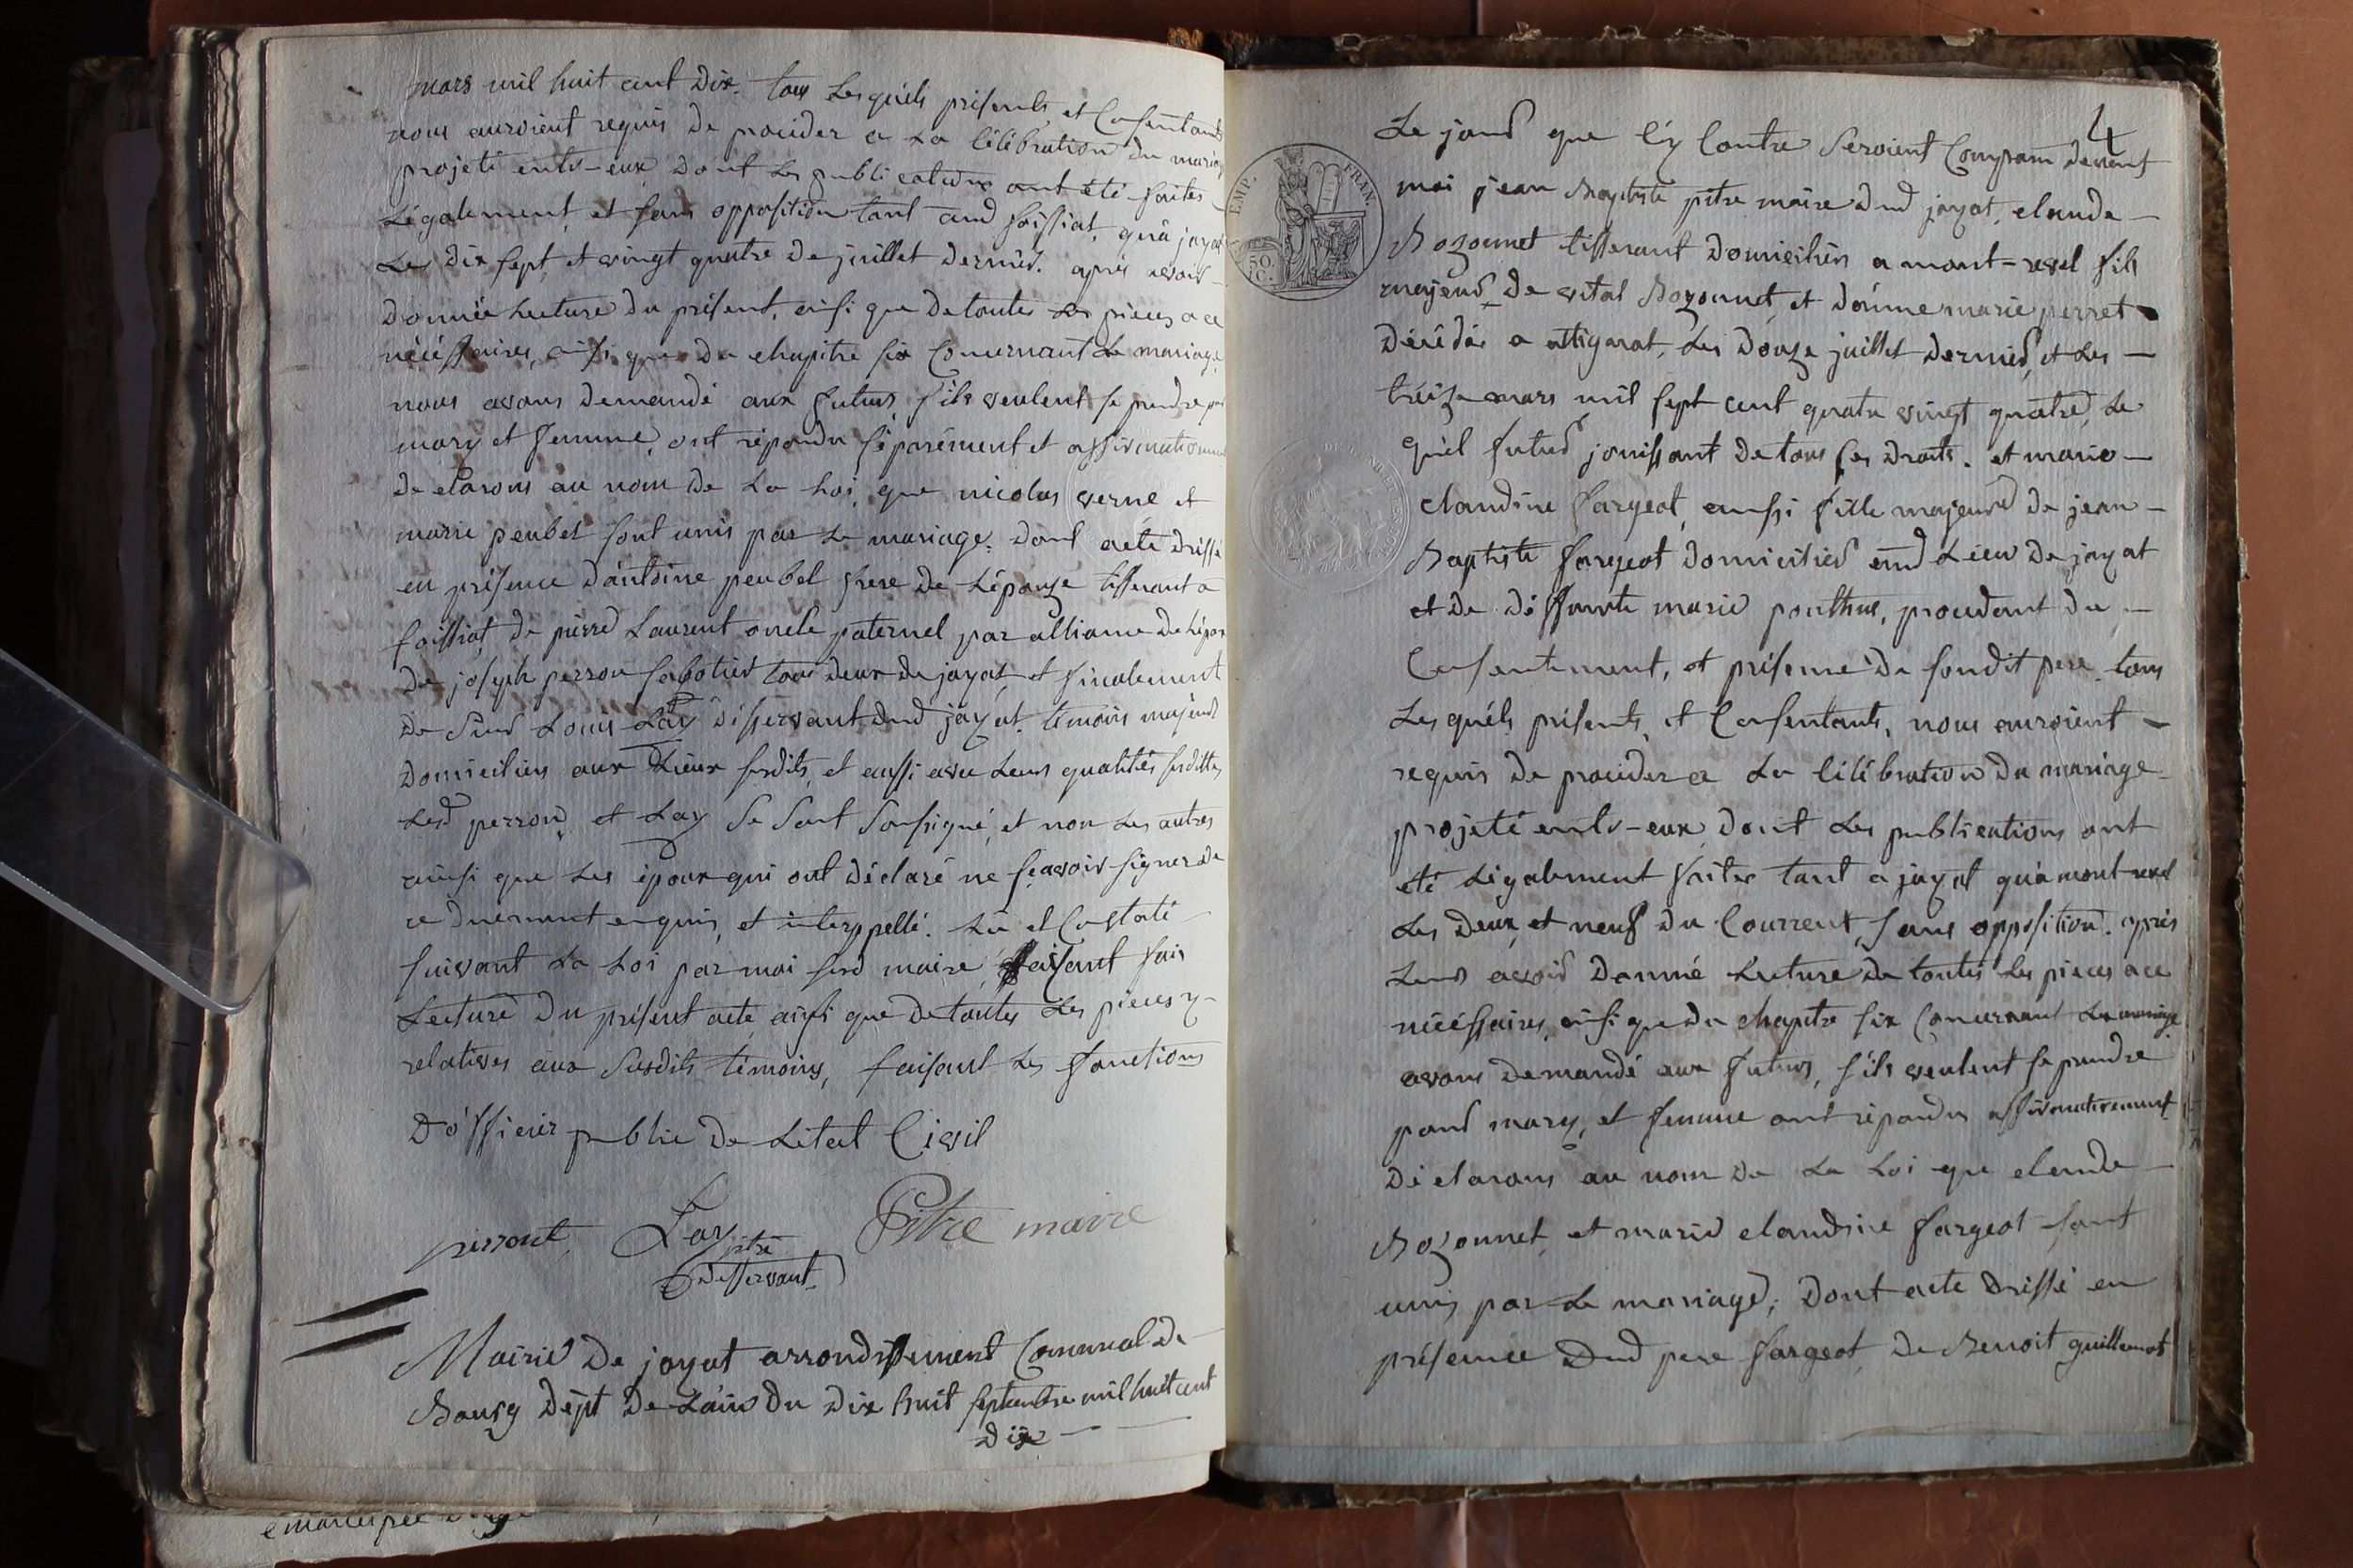 mars mil huit cent dix. tous Lesquéls présents et Consentants
nous auroient requis de procéder a La Célébration du mariage
projeté entr-eux dont Les publications ont été faites
Légalement, et sans opposition tant aud foissiat, qu'à jayat
Les dix sept, et vingt quatre de juillet dernier. après avoir
donnée Lecture du présent, ainsi que de toutes Les pièces a ce
nécéssaires, ainsi que du chapitre six Concernant Le mariage
nous avons demandé aux futurs, s'ils veulent se prendre pour
mary et femme, ont répondu séparément et affirmativement
declarons au nom de La Loi, que nicolas verne et
marie peubet sont unis par Le mariage. dont acte dréssé
en présence d'antoine peubel frere de L'épouze tisserant a
foissiat, de pierre Laurent oncle paternel par alliance de L'épou
de joseph perron sabotier tous deux de jayat, et finalement
de Sieur Louis Lay désservant dud jayat. témoins majeurs
domiciliés aux Lieux susdits, et aussi avec Leurs qualités susdittes
Lesd perron, et Lay Se sont soussigné, et non Les autres
ainsi que Les époux qui ont déclaré ne sçavoir signer de
ce duement enquis, et interppellé. Lu et Constaté
suivant La Loi par moi susd maire faisant
Lecture du présent acte ainsi que de toutes Les pièces y
relatives aux Susdits témoins, faisant Les fonctions
D'officier public de L'état Civil
perront Lay Pitre maire
ptre
desservant
Mairie de jayat arrondissement Communal de
Bourg dépt de L'ain du dix huit septembre mil huit cent
dix
4
Le jourd que C'y Contre Seroient Comparu devant
moi jean Baptiste pitre maire dud jayat, claude
Bozonnet tisserant domiciliés a mont-revel fils
majeur de vital Bozonnet, et d'anne marie perret
décédés a attignat, Les douze juillet dernier, et Les
tréize mars mil sept cent quatre vingt quatre, Le
quél futur jouissant de tous ses droits. et marie
claudine fargeot, aussi fille majeure de jean
Baptiste fargeot domicilier aud Lieu de jayat
et de déffunte marie ponthus, procedant du
Consentiment, et présence de sondit pere. tous
Lesquéls présents, et Consentants, nous auroient
requis de procéder a La Célébration du mariage
projeté entr-eux, dont Les publications ont
été Légalement faites tant a jayat qu'a mont-revel
Les deux, et neuf du Courrent, sans opposition. après
Leur avoir donné Lecture de toutes Les pieces a ce
nécéssaires, ainsi que du chapitre six Concernant Le mariage
avons demandé aux futurs, s'ils veulent se prendre
pour mary, et femme ont répondu affirmativement
déclarons au nom de La Loi que claude
Bozonnet, et marie claudine fargeot sont
unis par Le mariage; dont acte dréssé en
présence dud pere fargeot, de Benoit guillemot
EMP. FRAN.
50.
C.